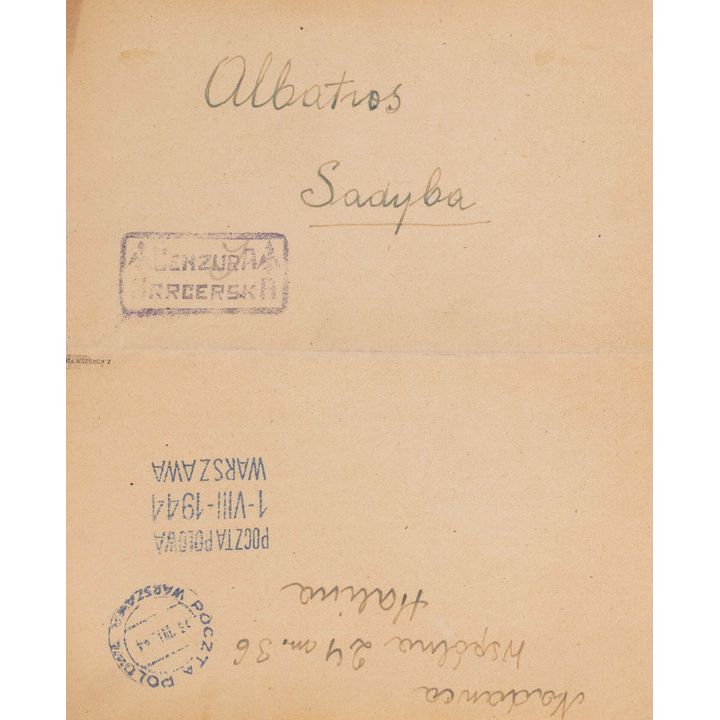 Albatros
Sadyba
CENZURA
HARCERSKA
POCZTA POLOWA
1-VIII-1944
WARSZAWA
POCZTA POLOWA WARSZAWA
VIII 44
Nadawca
Wspólna 24 m. 36
Halina